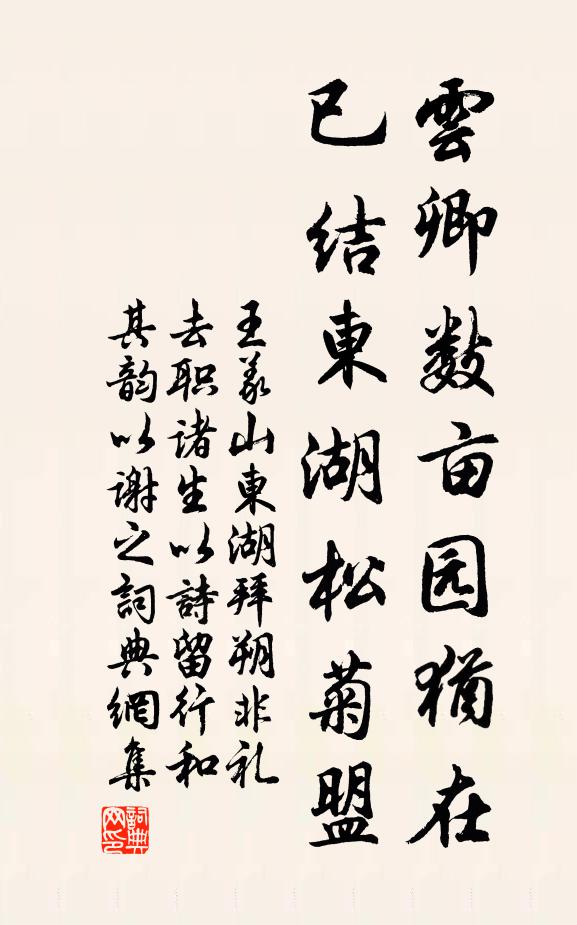 雲卿数亩园犹在
已结東湖松菊盟
王义山東湖拜朔非礼
去职诸生以詩留行和
其韵以谢之詞典網集
詞典网印